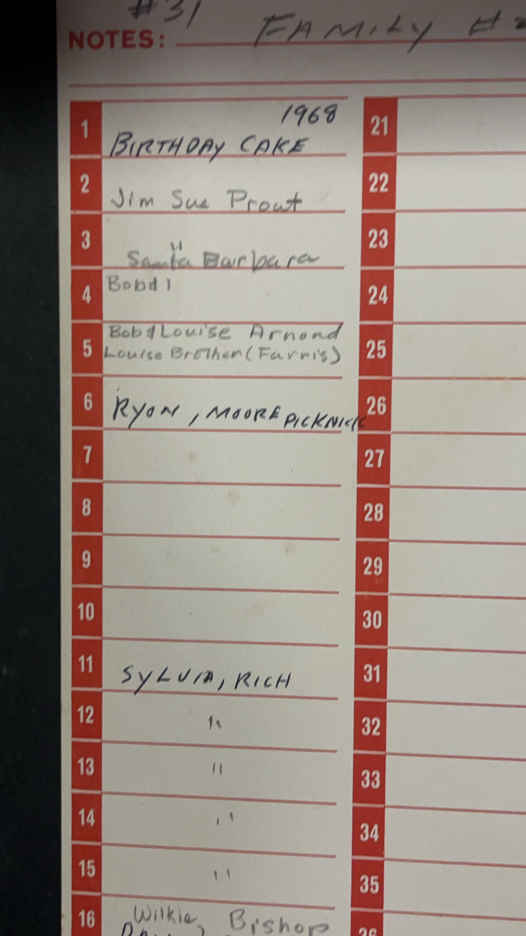 #31
NOTES: FAMILY #2
1 1968
BIRTHDAY CAKE
2 Jim Sue Prout
3 "
Santa Barbara
4 Bobd1
5 Bob & Louise Arnond
Louise Brother (Farris)
6 RYON, MOORE PICKNICK
7
8
9
10
11 SYLVIA, RICH
12 "
13 "
14 "
15 "
16 Wilkie, Bishop
21
22
23
24
25
26
27
28
29
30
31
32
33
34
35